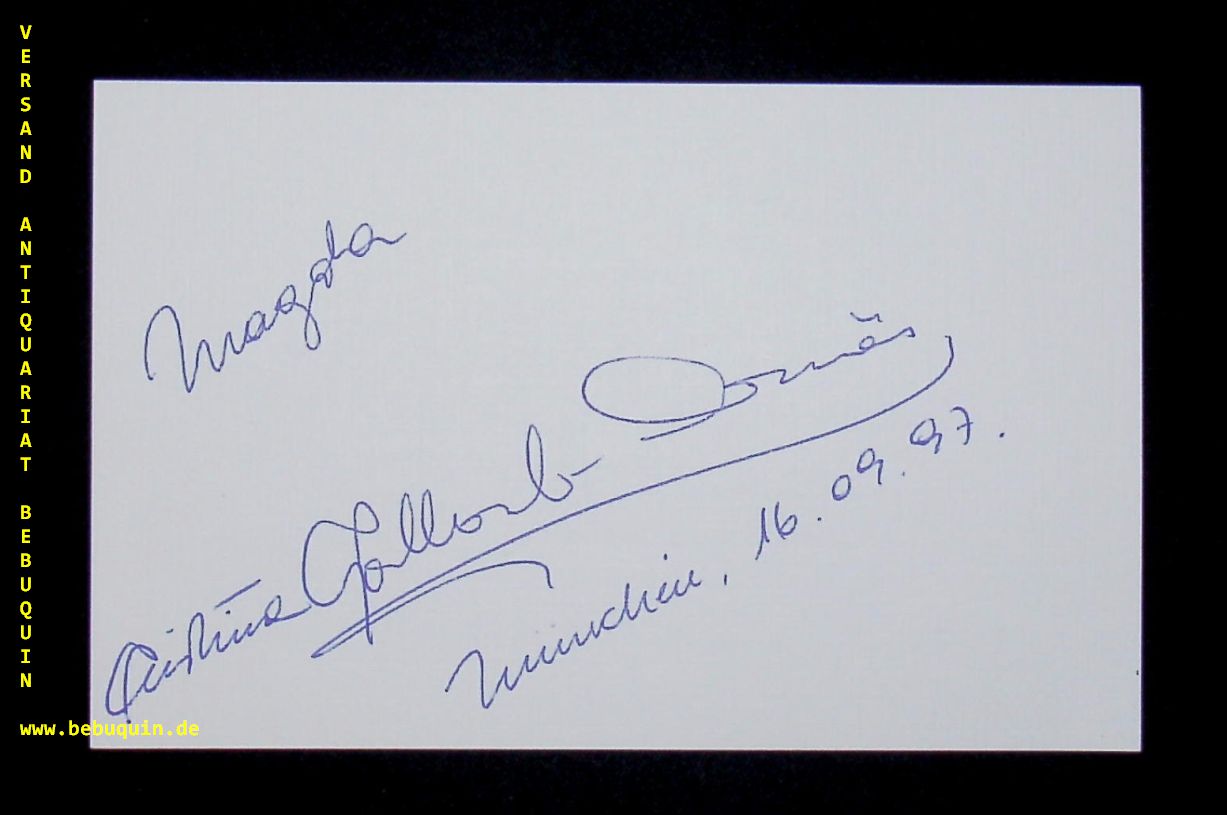 VERSAND ANTIQUARIAT BEBUQUIN
Magda
Cristina Gallardo-Domâs
München, 16.09.97.
www.bebuquin.de